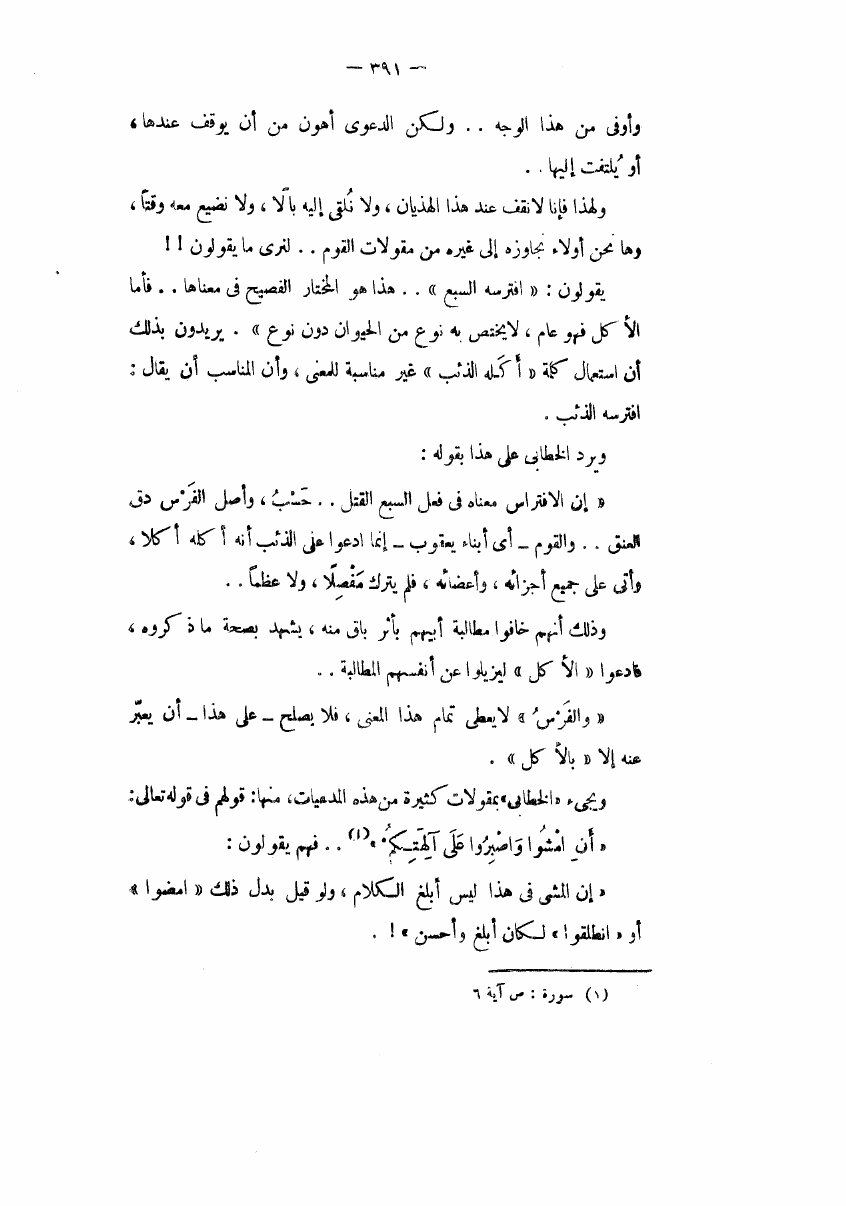 — ٣٩١ —
وأوفى من هذا الوجه .. ولكن الدعوى أهون من أن يوقف عندها،
أو يُلتفت إليها ..
ولهذا فإنا لانقف عند هذا الهذيان ، ولا نُلقى إليه بالًا ، ولا نضيع معه وقتاً ،
وها نحن أولاء نجاوزه إلى غيره من مقولات القوم .. لنرى ما يقولون !!
يقولون : « افترسه السبع » .. هذا هو المختار الفصيح فى معناها .. فأما
الأكل فهو عام ، لايختص به نوع من الحيوان دون نوع » . يريدون بذلك
أن استعمال كلمة « أَكَله الذئب » غير مناسبة للمعنى ، وأن المناسب أن يقال :
افترسه الذئب .
ويرد الخطابى على هذا بقوله :
« إن الافتراس معناه فى فعل السبع القتل .. حَسْبُ ، وأصل الفَرْس دق
العنق .. والقوم ــ أى أبناء يعقوب ــ إنما ادعوا على الذئب أنه أكله أكلا ،
وأتى على جميع أجزائه ، وأعضائه ، فلم يترك مَفْصِلًا ، ولا عظماً ..
وذلك أنهم خافوا مطالبة أبيهم بأثر باق منه ، يشهد بصحة ماذكروه ،
فادعوا « الأكل » ليزيلوا عن أنفسهم المطالبة ..
« والفَرْسُ » لايعطى تمام هذا المعنى ، فلا يصلح ــ على هذا ــ أن يعبّر
عنه إلا « بالأكل » .
ويجىء «الخطابى» بمقولات كثيرة من هذه المدعيات، منها: قولهم فى قوله تعالى:
« أَنِ امْشُوا وَاصْبِرُوا عَلَى آلِهَتِكُمْ »(١) .. فهم يقولون :
« إن المشى فى هذا ليس أبلغ الكلام ، ولو قيل بدل ذلك « امضوا »
أو « انطلقوا » لكان أبلغ وأحسن » ! .
(١) سورة : ص آية ٦